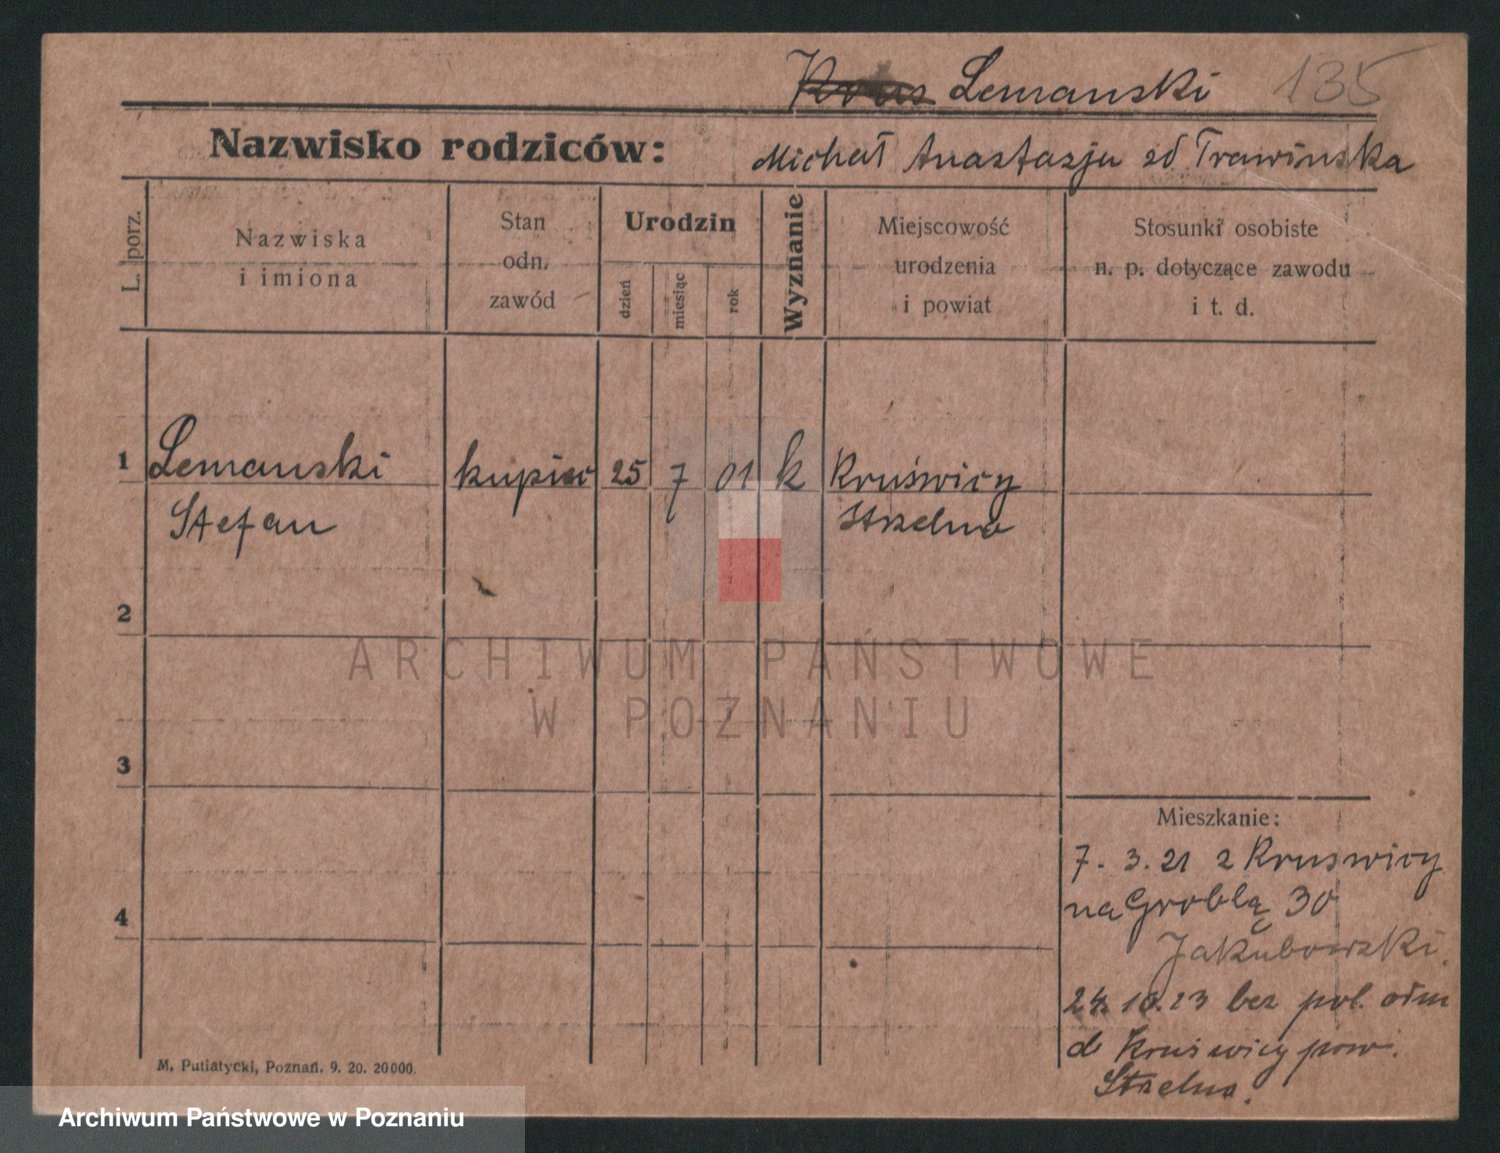 Lemanski 135
Nazwisko rodziców: Michał Anastazju zd Trawinska
L. porz.
Nazwiska
i imiona
Stan
odn.
zawód
Urodzin
dzień
miesiąc
rok
Wyznanie
Miejscowość
urodzenia
i powiat
Stosunki osobiste
n. p. dotyczące zawodu
i t. d.
1 Lemanski kupiec 25 7 01 k Kruświcy
Stefan Strzelno
2
ARCHIWUM PAŃSTWOWE
W POZNANIU
3
Mieszkanie:
7. 3. 21 z Kruswicy
4 na Groblą 30
Jakubowski.
24. 10. 23 bez pol. odm
do Kruświcy pow.
Strzelno.
M. Putiatycki, Poznań. 9. 20. 20000.
Archiwum Państwowe w Poznaniu